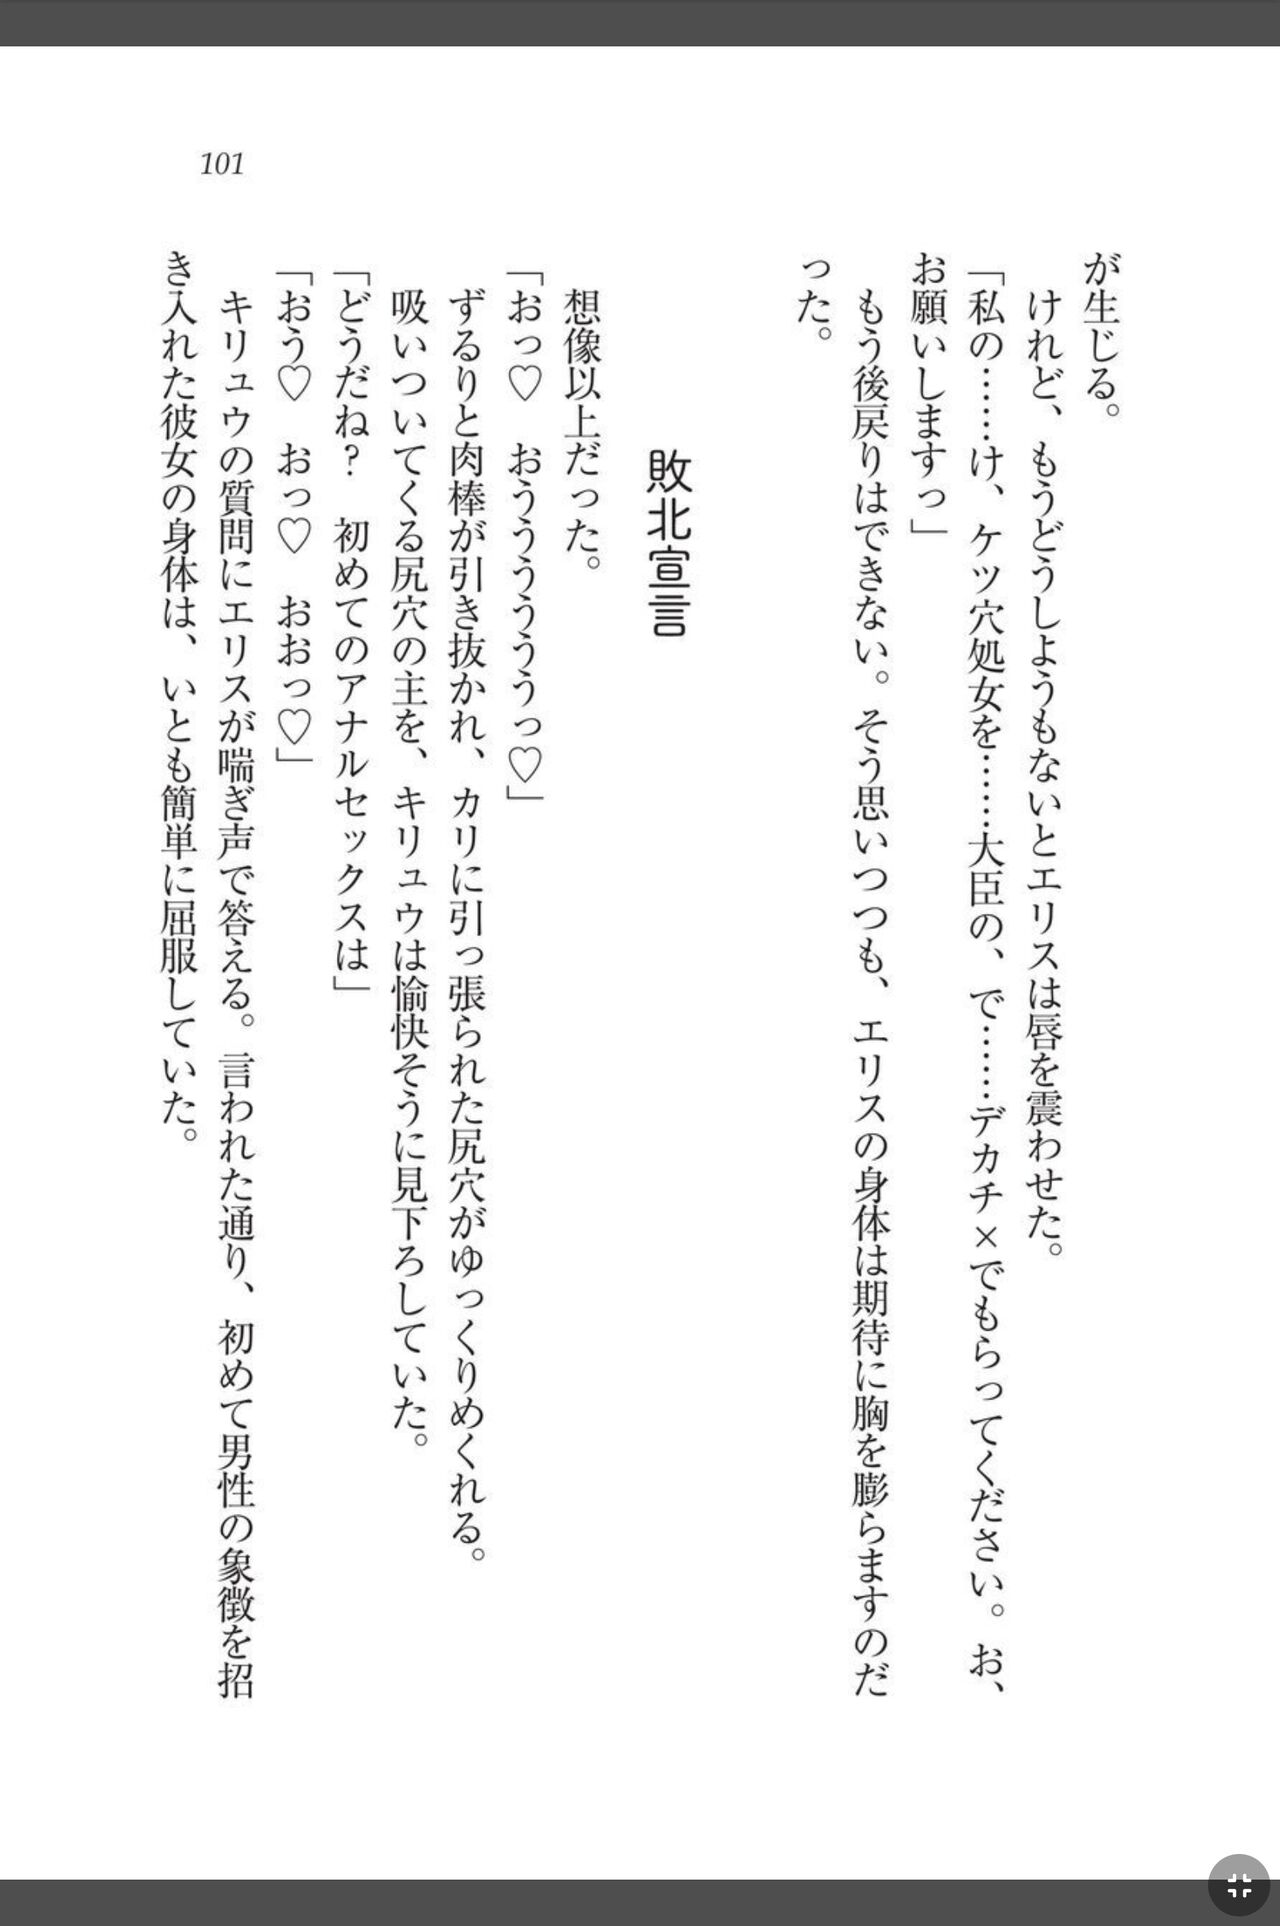 101
が生じる。
けれど、もうどうしようもないとエリスは唇を震わせた。
「私の……け、ケツ穴処女を……大臣の、で……デカチ×でもらってください。お、
お願いしますっ」
もう後戻りはできない。そう思いつつも、エリスの身体は期待に胸を膨らますのだ
った。
敗北宣言
想像以上だった。
「おっ♡　おうううううっ♡」
ずるりと肉棒が引き抜かれ、カリに引っ張られた尻穴がゆっくりめくれる。
吸いついてくる尻穴の主を、キリュウは愉快そうに見下ろしていた。
「どうだね？　初めてのアナルセックスは」
「おう♡　おっ♡　おおっ♡」
キリュウの質問にエリスが喘ぎ声で答える。言われた通り、初めて男性の象徴を招
き入れた彼女の身体は、いとも簡単に屈服していた。